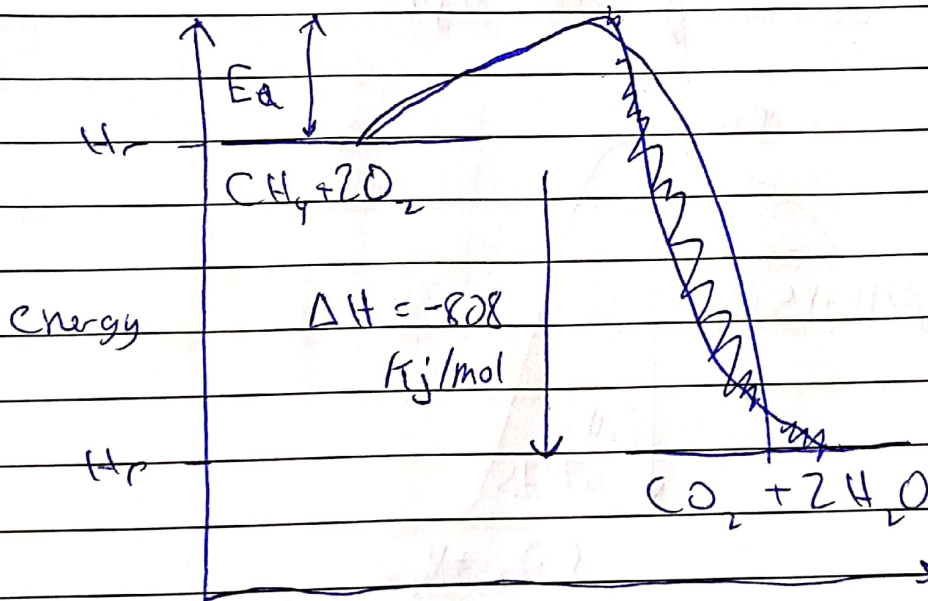 Ea
Hr
CH₄+2O₂
energy
ΔH = -808
Kj/mol
Hp
CO₂ + 2H₂O